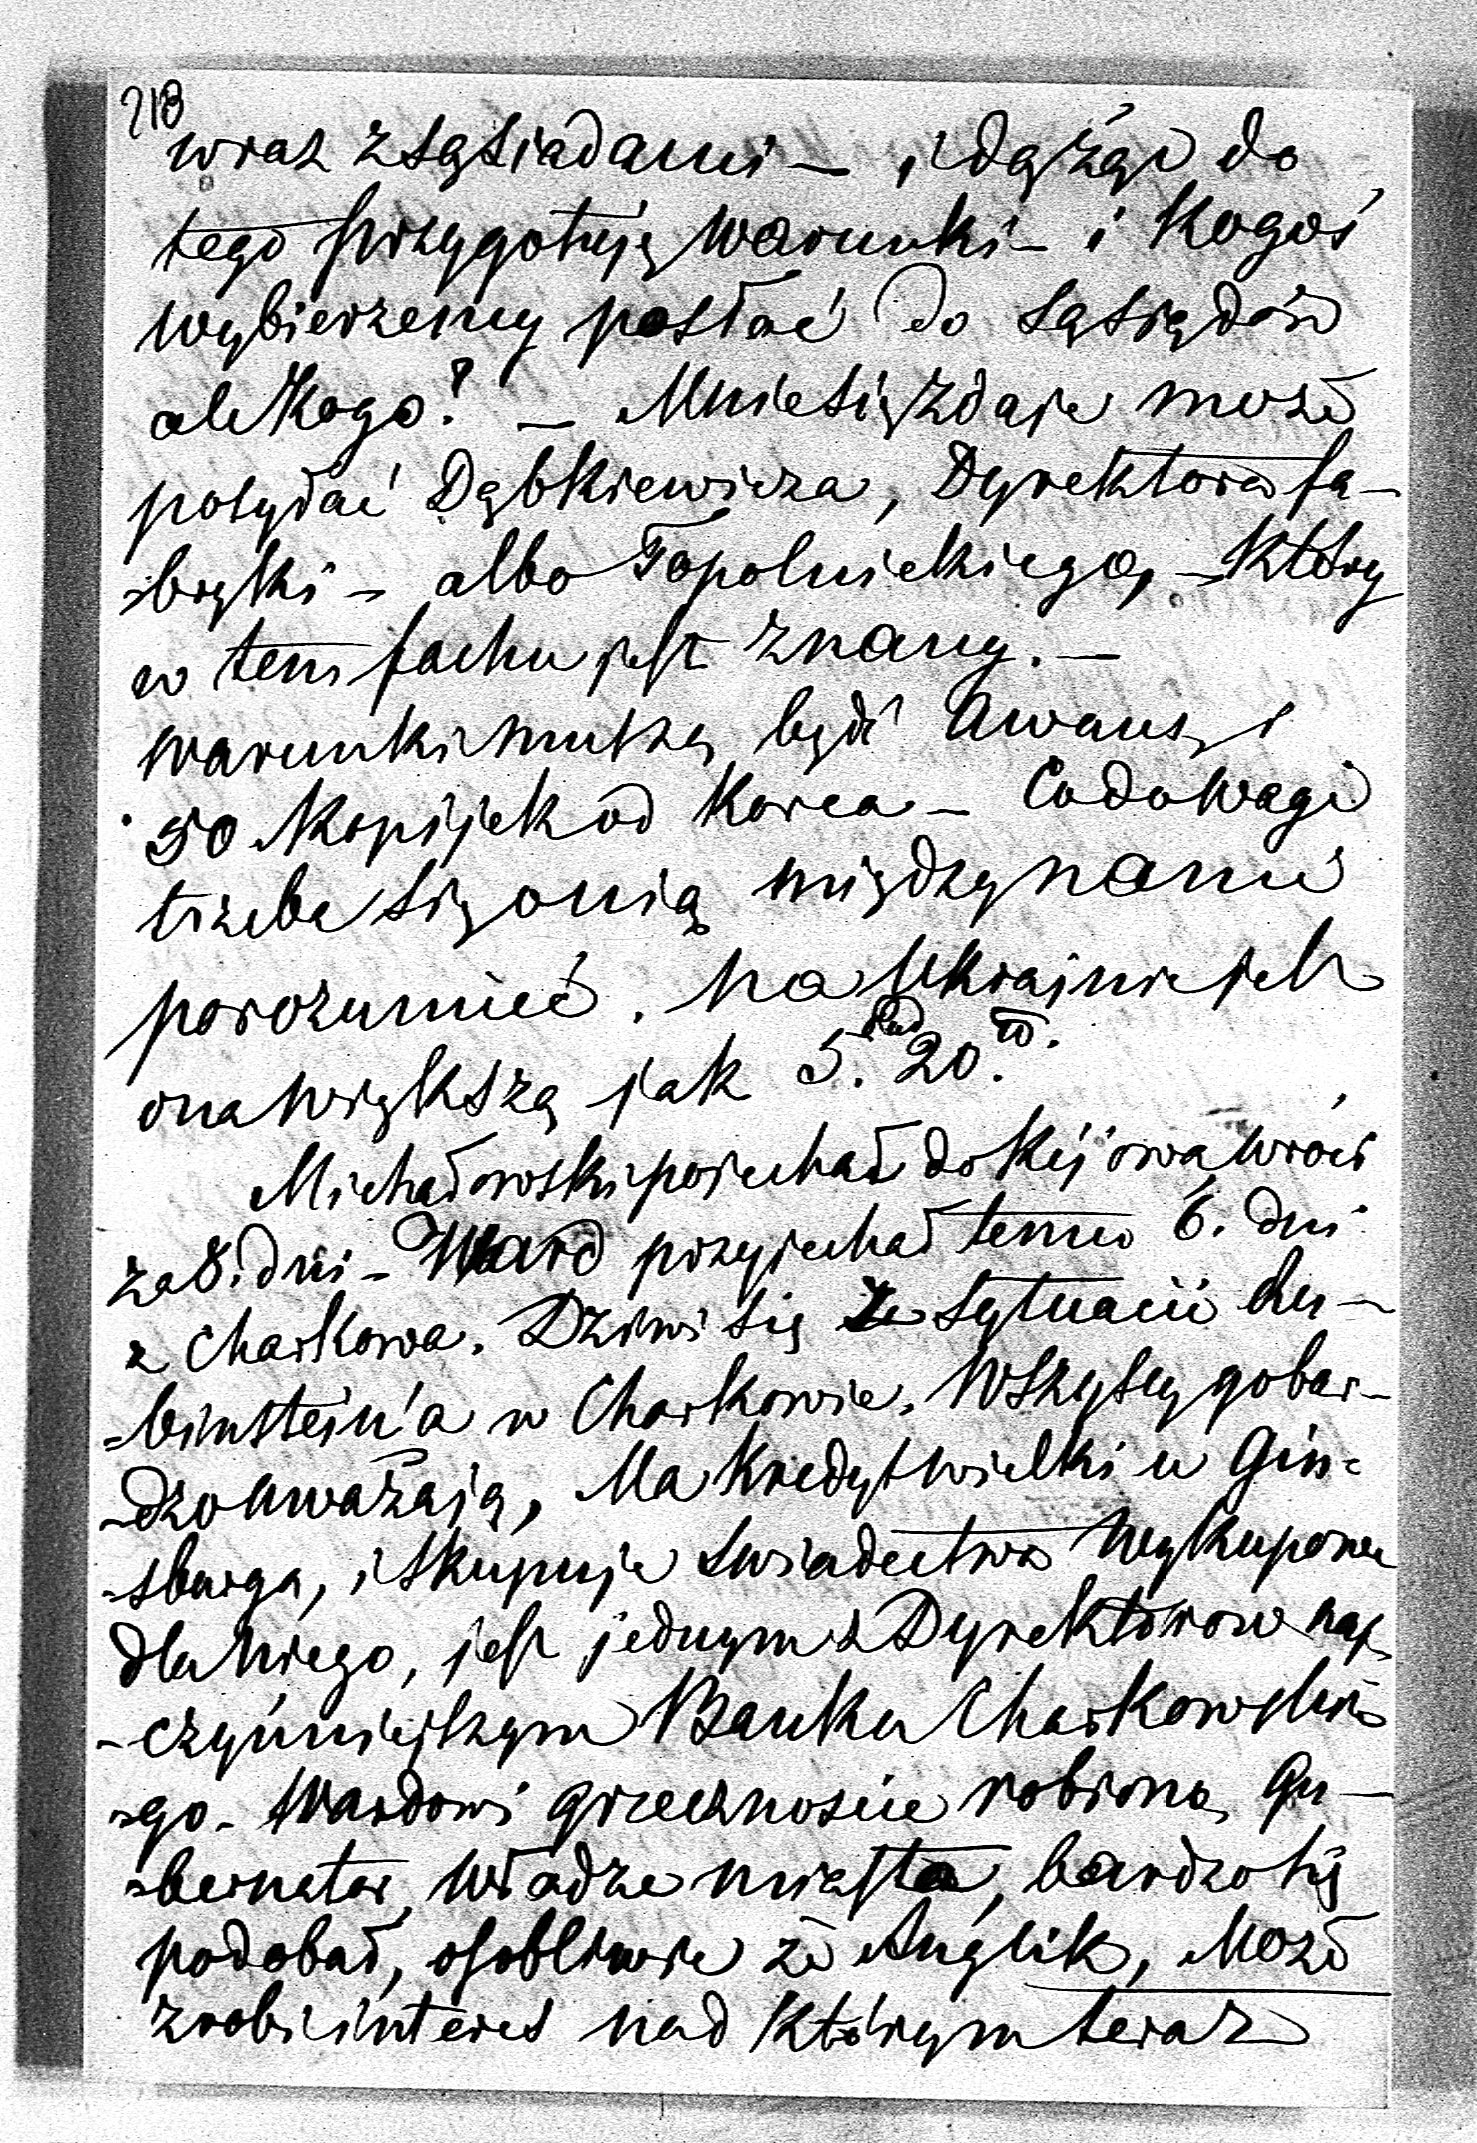 218
wraz z sąsiadami – i dążąc do
tego przygotują warunki – i kogoś
wybierzemy posłać do sąsiadów
ale kogo? – Mnie się zdaje może
posyłać Dąbkiewicza, Dyrektora fa-
-bryki – albo Topolnickiego, – który
w tem fachu jest znany. –
warunki muszą bydź awans, i
50 kopijek od korca – Co do wagi
trzeba się o nią między nami
porozumieć. na Ukrainie jest
ona większą jak 5. pud 20. fó.
Michałowski pojechał do Kijowa, wróci
za 8. dni – Ward przyjechał temu 6. dni
z Charkowa. Dziwi się ze sytuacii Ru-
-binstein'a w Charkowie. Wszyscy go bar-
-dzo uważają, Ma kredyt wielki u Gin-
-sburga, i skupuje swiadectwa wykupowe
dla niego, jest jednym z Dyrektorow naj-
-czynniejszym Banku Charkowskie-
-go. Wardowi grzecznoscie robiono, Gu-
-bernator, władze miasta, bardzo się
podobał, osobliwie że Anglik, Może
zrobi interes nad którym teraz